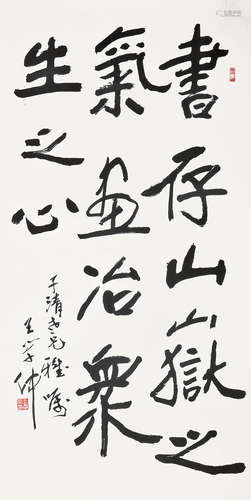 書存山嶽之
氣畫冶衆
生之心
于清老兄雅嘱
王学仲